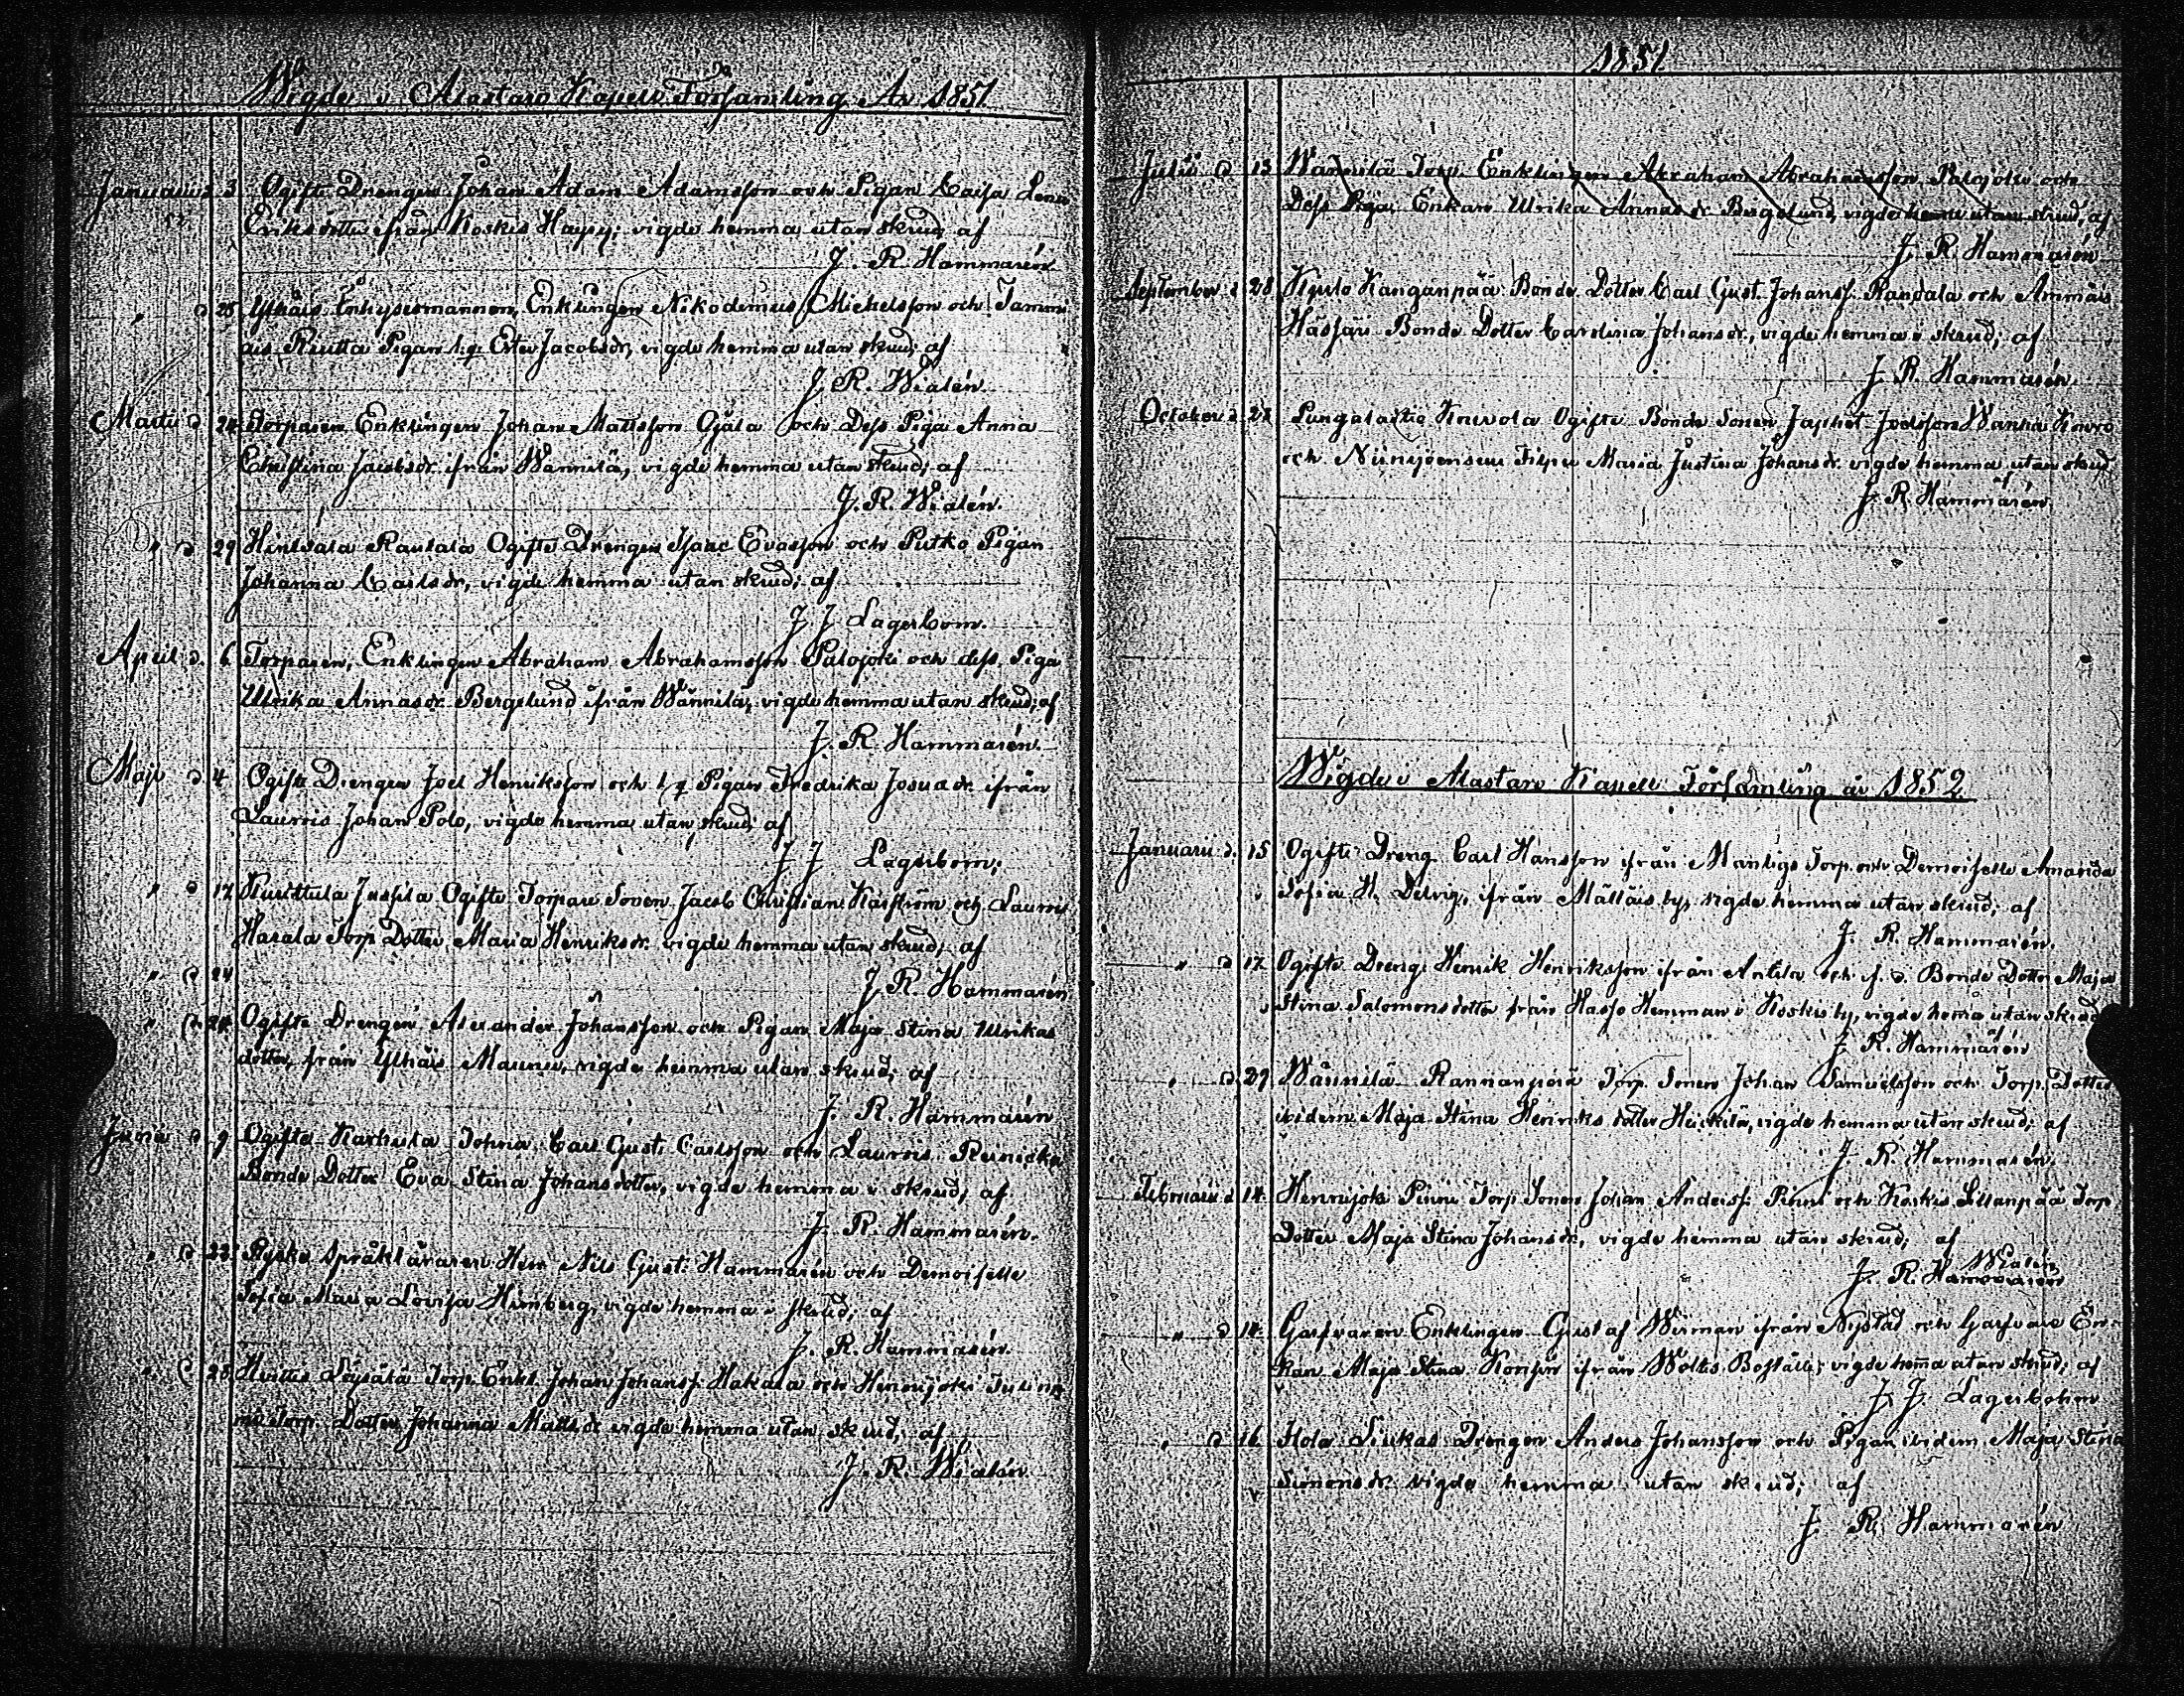 Wigde i Alastaro Kapell Församling År 1851
Januarii d. 3 Ogifte Drengen Johan Adam Adamsson och Pigan Caisa Lena
Eriksdotter ifrån Koskis Haysy; vigde hemma utan skrud af
J. R. Hammarén
" d 25 Ythäis Inhysesmannen, Enklingen Nikodemus Michelsson och Tammi
ais Riutta Pigan h.q. Ester Jacobsdr, vigde hemma utan skrud; af
J. R. Wialén.
Martii d 24 Torparen Enklingen Johan Mattsson Ojala och Dess Piga Anna
Christina Jacobsdr. ifrån Wännilä, vigde hemma utan skrud; af
J. R. Wialén.
" d 29 Hinttala Rautala Ogifte Drengen Isaac Evasson och Putko Pigan
Johanna Carlsdr, vigde hemma utan skrud; af
J J Lagerbom.
April d. 6 Torparen, Enklingen Abraham Abrahamsson Palojoki och dess Piga
Ulrika Annasdr Bergslund ifrån Wännilä, vigde hemma utan skrud; af
J. R Hammarén.
Maji d 4 Ogifte Drengen Joel Henriksson och h.q. Pigan Fredrika Josuadr. ifrån
Laurois Johan Polo, vigde hemma utan skrud; af
J J Lagerbom;
" d 17 Jussila Ogifte Torpare Sonen Jacob Christian och Laurois
Harala Torp Dotter Maria Henriksdr. vigde hemma utan skrud; af
" d 24 J. R. Hammarén
" d 24 Ogifte Drengen Alexander Johansson och Pigan Maja Stina Ulrikas
dotter, från Ylhäis Maunu, vigde hemma utan skrud; af
J. R. Hammarén
Junii d 9 Ogifte Karhula Johna Carl Gust. Carlsson och Laurois Reinicka
Bonde Dotter Eva Stina Johansdotter, vigde hemma i skrud; af
J. R. Hammarén.
" d 22. Ryska Språkläraren Herr Nils Gust: Hammarén och Demoiselle
Sofia Maria Lovisa Himberg, vigde hemma i skrud; af
J. R. Hammarén.
" d 25 Hirttis Löysälä Torp. Enkl. Johan Johanss. Hakala och Hennijoki
Torp. Dotter Johanna Mattsdr vigde hemma utan skrud; af
J. R. Wialén
1851
Julii d 13 Wännilä Torp. Enklingen Abraham Abrahamsson Palojoki och
Dess Piga, Enkan Ulrika Annasdr Bergslund, vigde hemma utan skrud, af
J. R. Hammarén
September d 28 Kanganpää Bonde Dotter Carl Gust. Johanss. Randala och Ammäis
Bonde Dotter Carolina Johansdr., vigde hemma i skrud; af
J. R. Hammarén
October d. 28 Kouvola Ogifte Bonde Sonen Japhet Joelsson
och Niinijoensuu Maria Justina Johansdr. vigde hemma utan skrud
af
J. R Hammarén.
Wigde i Alastaro Kapell Församling år 1852
Januarii d. 15 Ogifte Dreng. Carl Hansson ifrån Torp. och Demoiselle Amanda
Sofia H. ifrån Mälläis by, vigde hemma utan skrud; af
J. R. Hammarén.
" d 17. Ogifte Dreng. Henrik Henriksson ifrån Antila och f. d. Bonde Dotter Maja
Stina Salomonsdotter från Hasso Hemman i Koskis by, vigde hema utan skrud
af
J. R. Hammarén
" d. 29 Wännilä Rannanpää Torp. Sonen Johan Samuelsson och Torp. Dotter
ibidem Maja Stina Henriks dotter Heickilä, vigde hemma utan skrud; af
J. R. Hammarén.
Februarii d 14. Hennijoki Pinni Torp. Sonen Johan Anderss. Pinni och Koskis Torp
Dotter Maja Stina Johansdr, vigde hemma utan skrud; af
Wialén
J. R. Hammarén
" d 14. Garfvaren Enklingen Gustaf Wirman ifrån Nystad och Garfvare En-
kan Maja Stina ifrån Woltis Boställe; vigde hema utan skrud; af
J. J. Lagerbohm
" d 16 Hola Siukas Drengen Anders Johansson och Pigan ibidem Maja Stina
Simonsdr. vigde hemma utan skrud; af
J. R. Hammarén